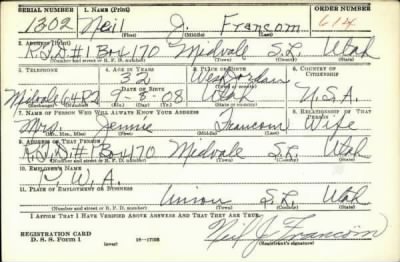 SERIAL NUMBER 1. NAME (Print) ORDER NUMBER
1302 Neil J. Francom 614
(First) (Middle) (Last)
2. ADDRESS (Print)
R.F.D. #1 Box 170 Midvale S.L. Utah
(Number and street or R. F. D. number) (Town) (County) (State)
3. TELEPHONE 4. AGE IN YEARS 5. PLACE OF BIRTH 6. COUNTRY OF CITIZENSHIP
32 West Jordan
DATE OF BIRTH
Midvale 08 Utah U.S.A.
7. NAME OF PERSON WHO WILL ALWAYS KNOW YOUR ADDRESS 8. RELATIONSHIP OF THAT PERSON
Mrs. Jennie Francom Wife
(Mr., Mrs., Miss) (First) (Middle) (Last)
9. ADDRESS OF THAT PERSON
R.F.D. #1 Box 170 Midvale S.L. Utah
(Number and street or R. F. D. number) (Town) (County) (State)
10. EMPLOYER'S NAME
W. A.
11. PLACE OF EMPLOYMENT OR BUSINESS
Union S.L. Utah
(Number and street or R. F. D. number) (Town) (County) (State)
I AFFIRM THAT I HAVE VERIFIED ABOVE ANSWERS AND THAT THEY ARE TRUE.
REGISTRATION CARD
D. S. S. Form 1 (over) Neil J. Francom
(Registrant's signature)